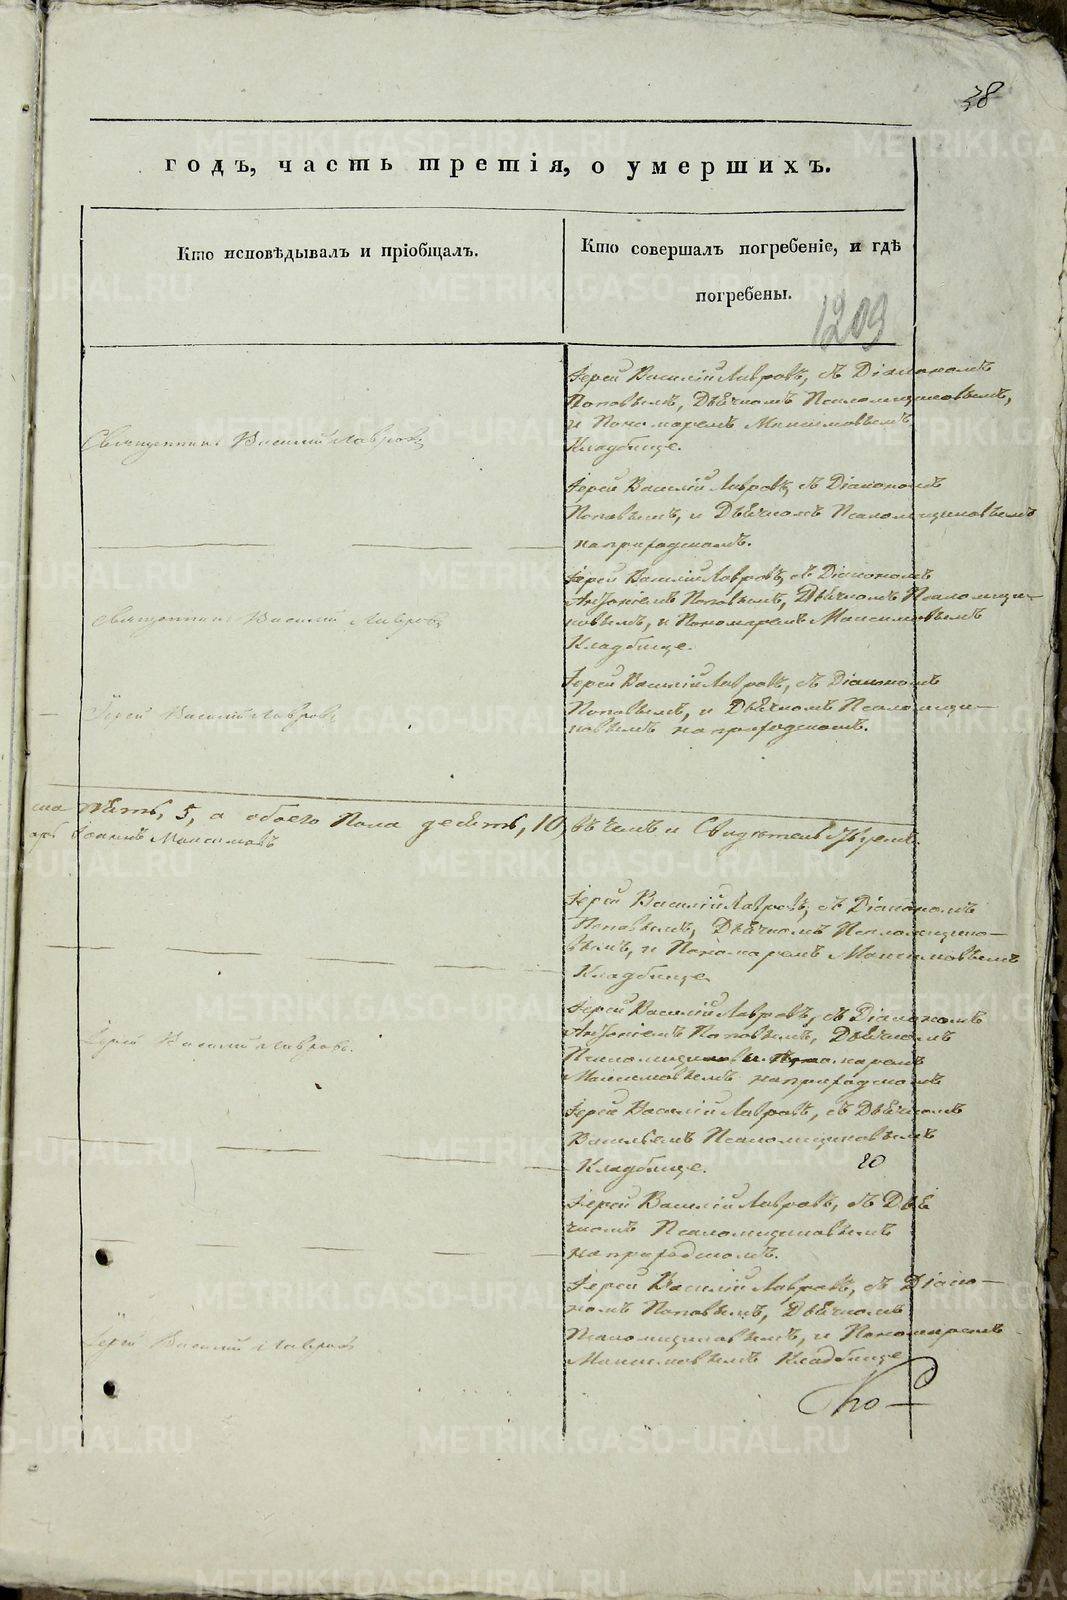 38
годъ, часть третія, о умершихъ.
Кто исповѣдывалъ и пріобщалъ.
Кто совершалъ погребеніе, и гдѣ
погребены.
1209
Іерей Василій Лавровъ, съ Діакономъ
Поповымъ, Дьячкомъ Псаломщиковымъ,
и Пономаремъ Максимовымъ
Кладбище.
Священникъ Василій Лавровъ
Іерей Василій Лавровъ, съ Діакономъ
Поповымъ, и Дьячкомъ Псаломщиковымъ
на приходскомъ.
Іерей Василій Лавровъ, съ Діакономъ
Поповымъ, Дьячкомъ Псаломщи-
ковымъ, и Пономаремъ Максимовымъ
Кладбище.
Священникъ Василій Лавровъ
Іерей Василій Лавровъ, съ Діакономъ
Поповымъ, и Дьячкомъ Псаломщи-
ковымъ на приходскомъ.
Іерей Василій Лавровъ
пять, 5, а обоего пола десять, 10, въ чемъ и Свидетельствуемъ.
Іоаннъ Максимовъ
Іерей Василій Лавровъ, съ Діакономъ
Поповымъ, Дьячкомъ Псаломщико-
вымъ, и Пономаремъ Максимовымъ
Кладбище
Іерей Василій Лавровъ, съ Діакономъ
Поповымъ, Дьячкомъ
Максимовымъ на приходскомъ
Іерей Василій Лавровъ.
Іерей Василій Лавровъ, съ Дьячкомъ
Псаломщиковымъ
Кладбище.
20
Іерей Василій Лавровъ, съ Дья
чкомъ Псаломщиковымъ
на приходскомъ.
Іерей Василій Лавровъ, съ Діако-
номъ Поповымъ, Дьячкомъ
Псаломщиковымъ, и Пономаремъ
Максимовымъ Кладбище
Іерей Василій Лавровъ
По-
METRIKI.GASO-URAL.RU